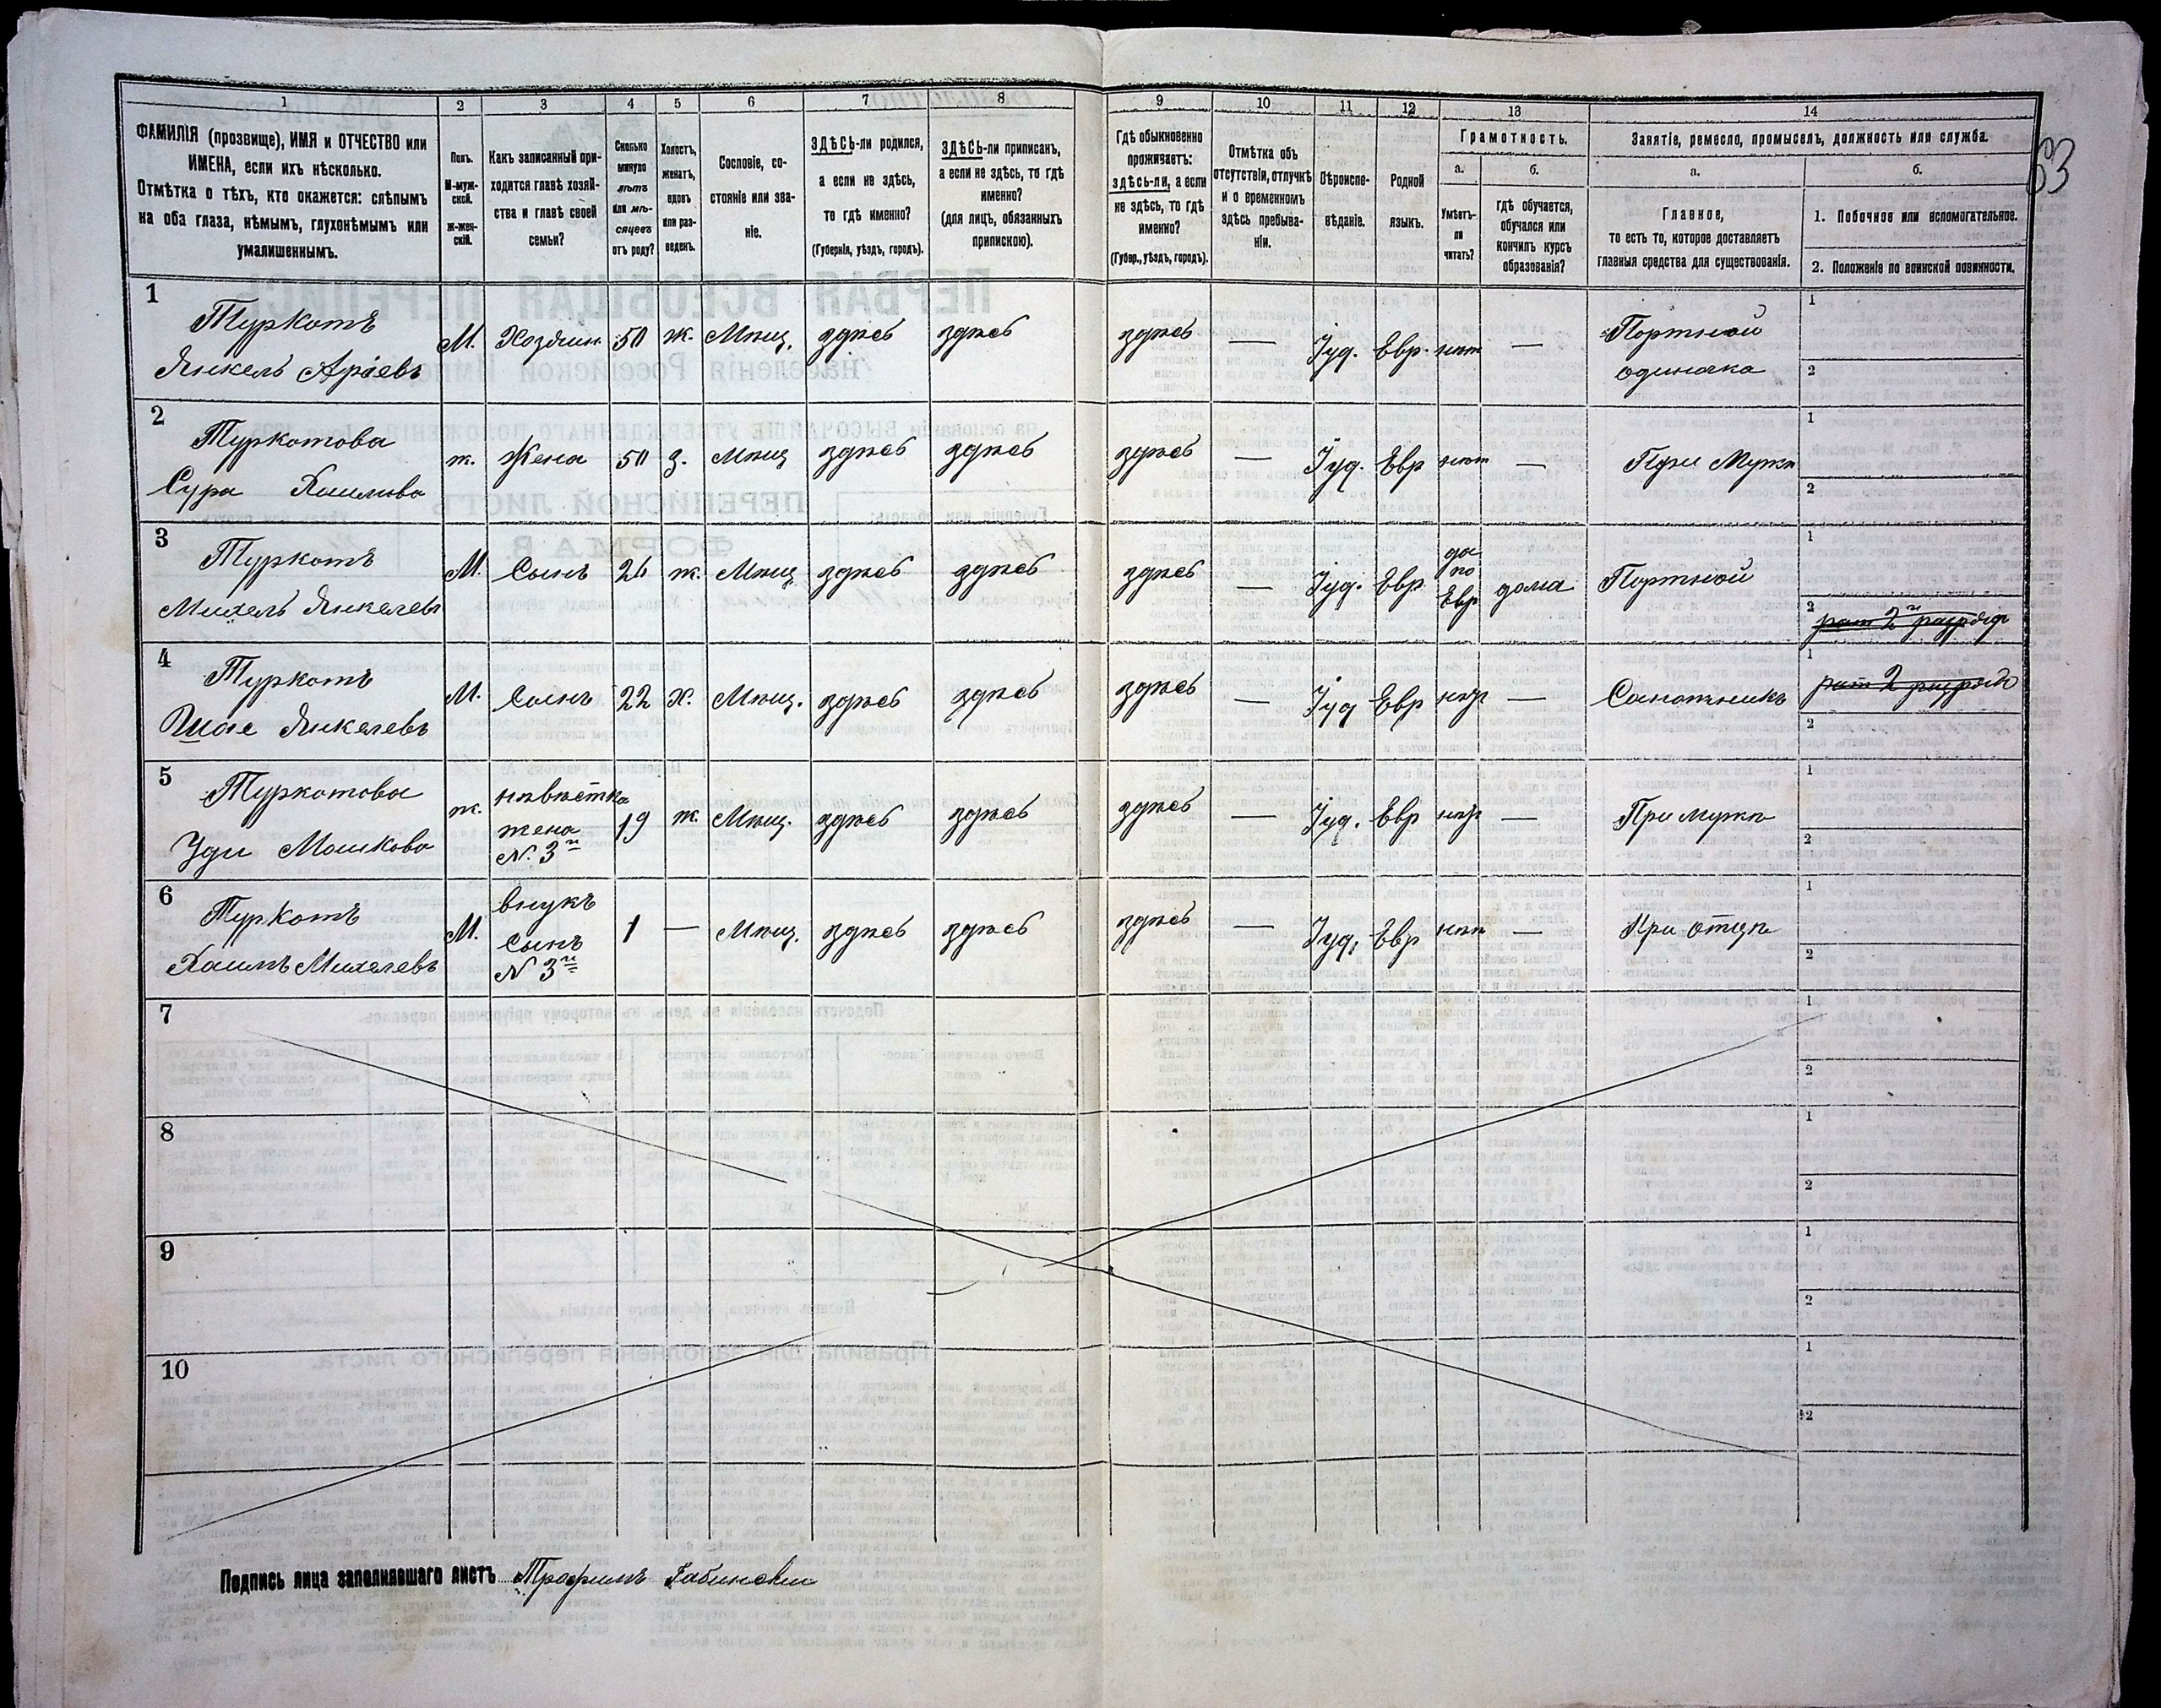 1 2 3 4 5 6 7 8 9 10 11 12 13 14
ФАМИЛІЯ (прозвище), ИМЯ и ОТЧЕСТВО или
ИМЕНА, если ихъ нѣсколько.
Отмѣтка о тѣхъ, кто окажется: слѣпымъ
на оба глаза, нѣмымъ, глухонѣмымъ или
умалишеннымъ.
Полъ.
М-муж-
ской.
Ж-жен-
скій.
Какъ записанный при-
ходится главѣ хозяй-
ства и главѣ своей
семьи?
Сколько
минуло
лѣтъ
или мѣ-
сяцевъ
отъ роду?
Холостъ,
женатъ,
вдовъ
или раз-
веденъ.
Сословіе, со-
стояніе или зва-
ніе.
ЗДѢСЬ-ли родился,
а если не здѣсь,
то гдѣ именно?
(Губернія, уѣздъ, городъ).
ЗДѢСЬ-ли приписанъ,
а если не здѣсь, то гдѣ
именно?
(для лицъ, обязанныхъ
припискою).
Гдѣ обыкновенно
проживаетъ:
здѣсь-ли, а если
не здѣсь, то гдѣ
именно?
(Губер., уѣздъ, городъ).
Отмѣтка объ
отсутствіи, отлучкѣ
и о временномъ
здѣсь пребыва-
ніи.
Вѣроиспо-
вѣданіе.
Родной
языкъ.
Грамотность.
а.
Умѣетъ-
ли
читать?
б.
гдѣ обучается,
обучался или
кончилъ курсъ
образованія?
Занятіе, ремесло, промыселъ, должность или служба.
а.
Главное,
то есть то, которое доставляетъ
главныя средства для существованія.
б.
1. Побочное или вспомогательное.
2. Положеніе по воинской повинности.
63
1
Туркотъ
Янкель
М. Хозяин 50 ж. Мѣщ. здѣсь здѣсь здѣсь — Іуд. Евр. нѣт —
Портной
одиночка
1
2
2
Туркотова
Сура Хаимова
ж. Жена 50 з. Мѣщ здѣсь здѣсь здѣсь — Іуд. Евр нѣт —
При Мужѣ
1
2
3
Туркотъ
Михель Янкелев
М. Сынъ 26 ж. Мѣщ здѣсь здѣсь здѣсь — Іуд. Евр
да
по
Евр
дома
Портной
1
2
рат 2 разряда
4
Туркотъ
Шае Янкелевъ
М. Сынъ 22 Х. Мѣщ. здѣсь здѣсь здѣсь — Іуд Евр нѣт —
Сапожникъ
1
рат 2 разряда
2
5
Туркотова
Уди Мошкова
ж.
невѣстка
жена
N. 3го
19 ж. Мѣщ. здѣсь здѣсь здѣсь — Іуд. Евр нѣт —
При мужѣ
1
2
6
Туркотъ
Хаимъ Михелевъ
М.
внукъ
сынъ
N 3го
1 — Мѣщ. здѣсь здѣсь здѣсь — Іуд. Евр нѣт —
При отцѣ
1
2
7
1
2
8
1
2
9
1
2
10
1
2
Подпись лица заполнявшаго листъ Трофимъ